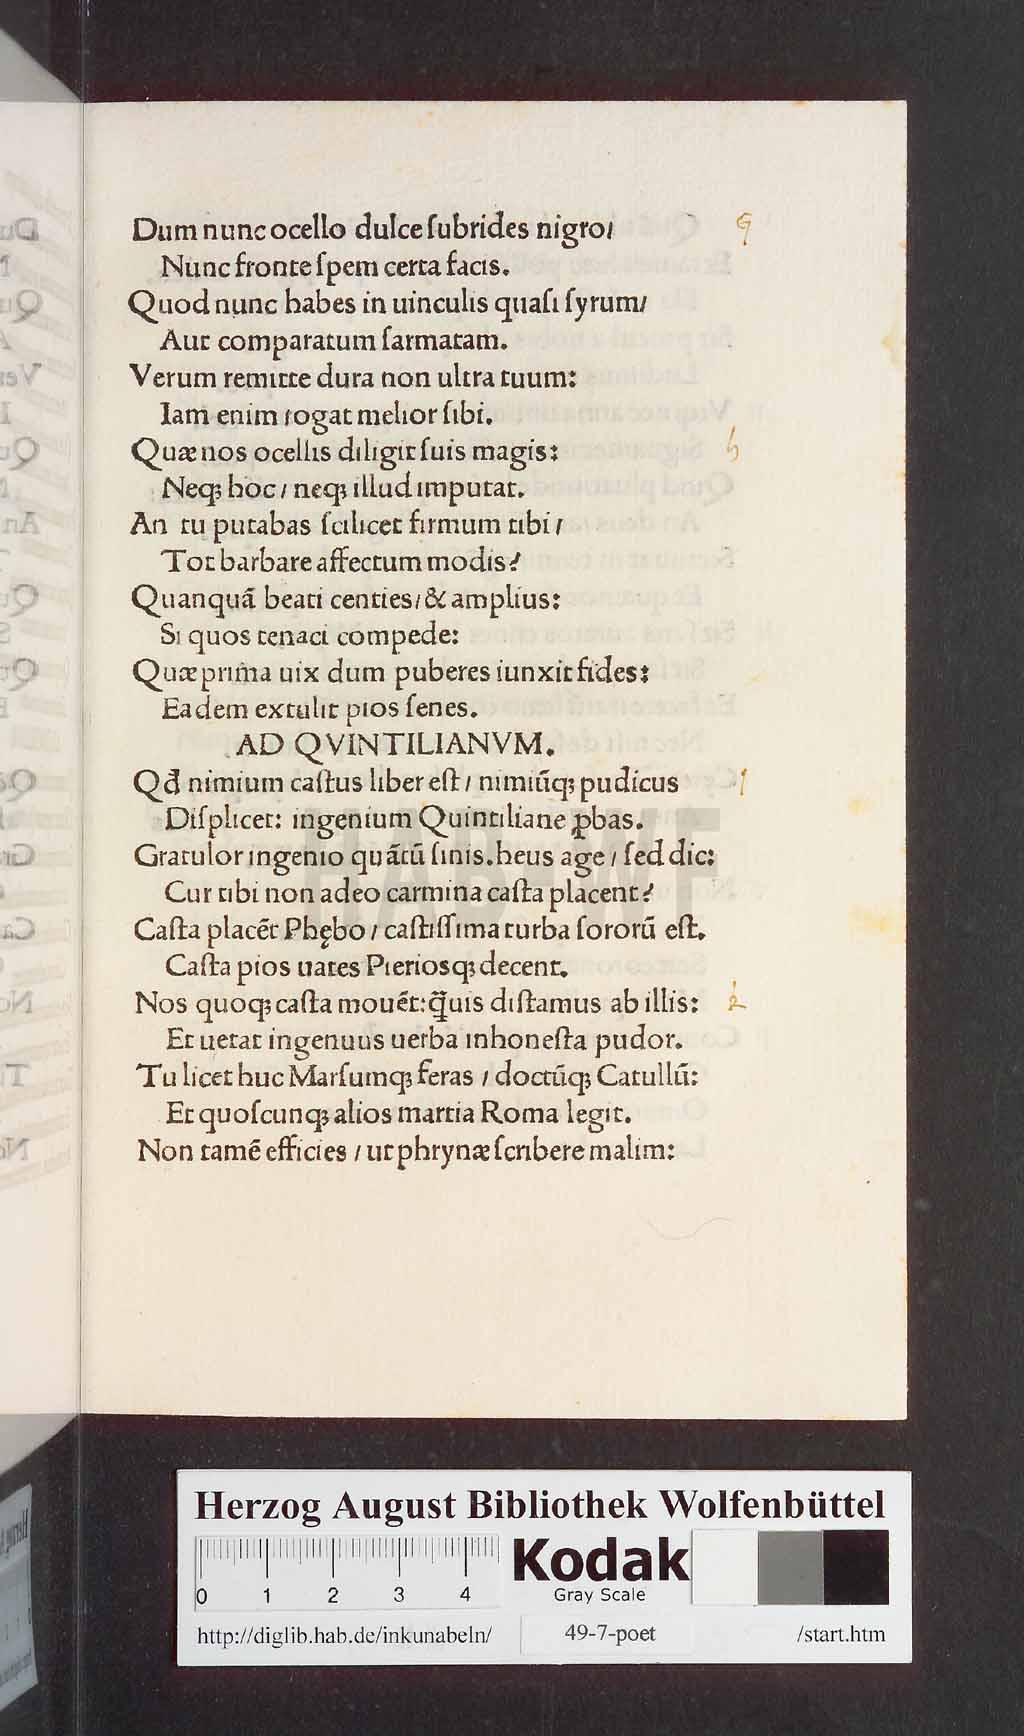 Dum nunc ocello dulce ſubrides nigro/
Nunc fronte ſpem certa facis.
Quod nunc habes in uinculis quaſi ſyrum/
Aut comparatum ſarmatam.
Verum remitte dura non ultra tuum:
Iam enim rogat melior ſibi.
Quæ nos ocellis diligit ſuis magis:
Neqꝫ hoc / neqꝫ illud imputat.
An tu putabas ſcilicet firmum tibi /
Tot barbare affectum modis?
Quanquã beati centies / & amplius:
Si quos tenaci compede:
Quæ prima uix dum puberes iunxit fides:
Eadem extulit pios ſenes.
AD QVINTILIANVM.
Qđ nimium caſtus liber eſt / nimiũqꝫ pudicus
Diſplicet: ingenium Quintiliane ꝓbas.
Gratulor ingenio quãtũ ſinis. heus age / ſed dic:
Cur tibi non adeo carmina caſta placent?
Caſta placẽt Phębo / caſtiſſima turba ſororũ eſt.
Caſta pios uates Pieriosqꝫ decent.
Nos quoqꝫ caſta mouẽt: q̃uis diſtamus ab illis:
Et uetat ingenuus uerba inhoneſta pudor.
Tu licet huc Marſumqꝫ feras / doctũqꝫ Catullũ:
Et quoſcunqꝫ alios martia Roma legit.
Non tamẽ efficies / ut phrynæ ſcribere malim:
HAB WF
Herzog August Bibliothek Wolfenbüttel
0 1 2 3 4
Kodak
Gray Scale
http://diglib.hab.de/inkunabeln/ 49-7-poet /start.htm